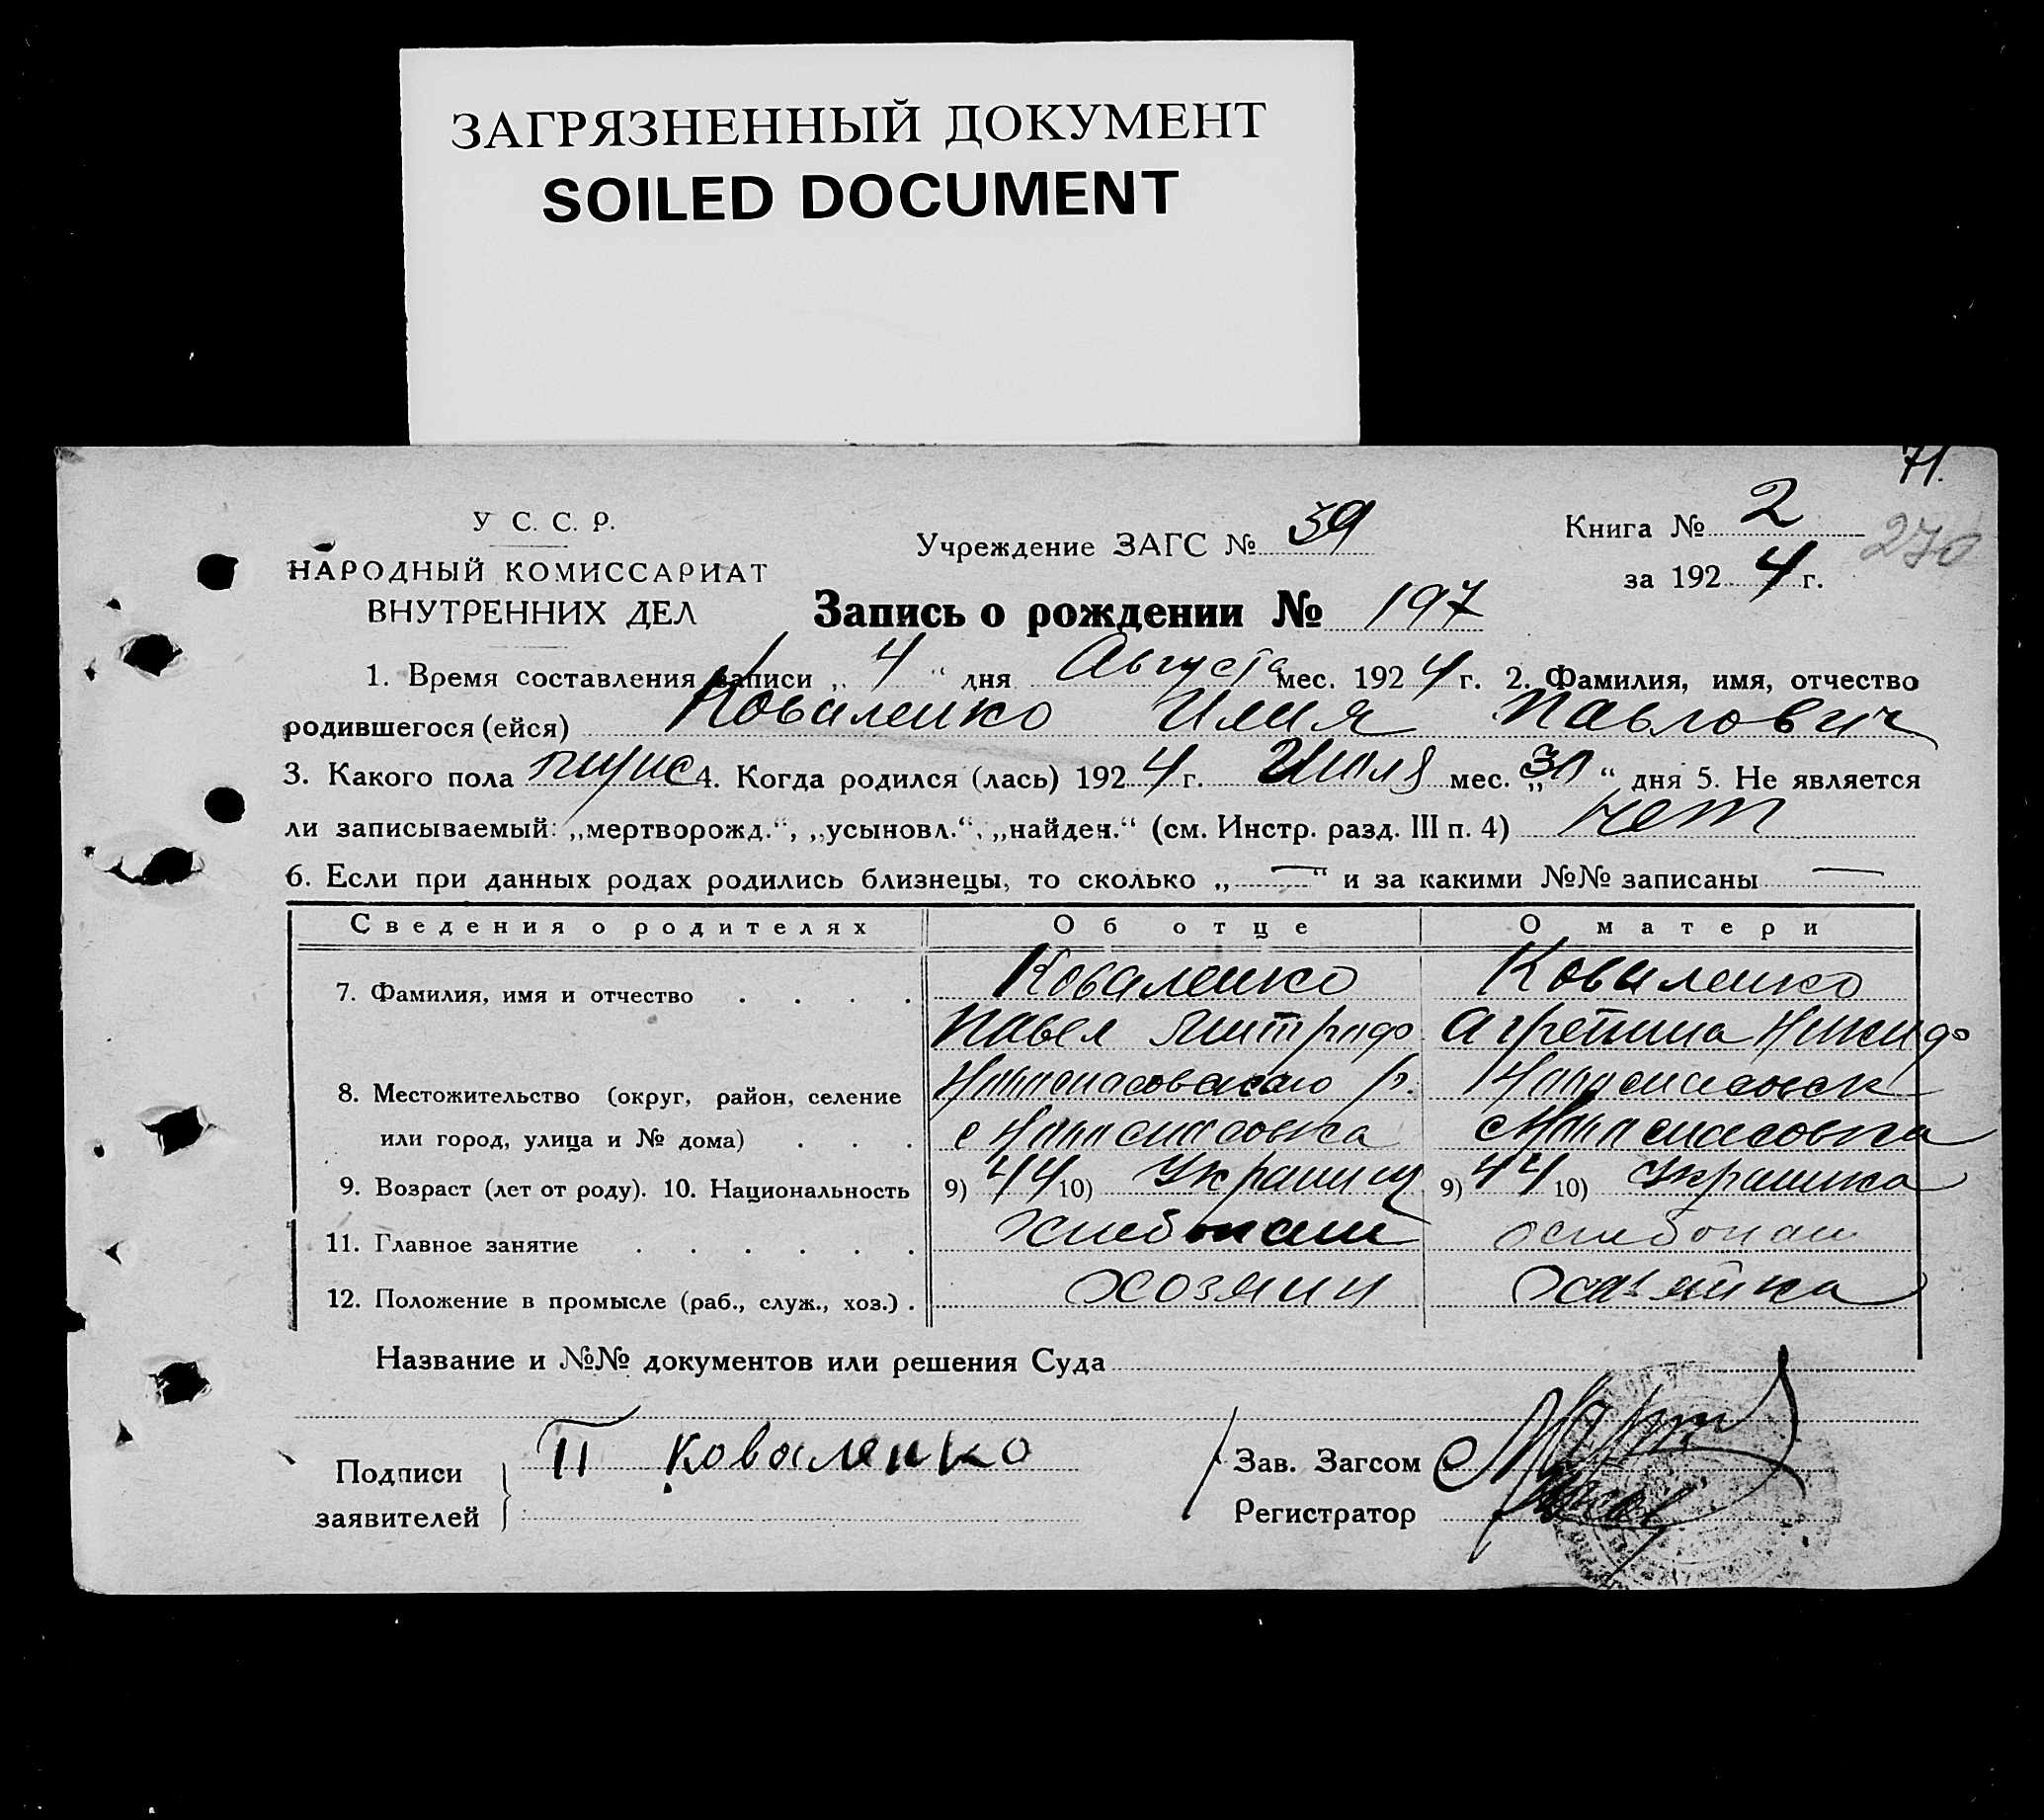 ЗАГРЯЗНЕННЫЙ ДОКУМЕНТ
SOILED DOCUMENT
71.
У С. С. Р.
НАРОДНЫЙ КОМИССАРИАТ
ВНУТРЕННИХ ДЕЛ
Учреждение ЗАГС № 59
Книга № 2
270
за 192 4 г.
Запись о рождении № 197
1. Время составления записи „ 4 “ дня Августа мес. 192 4 г. 2. Фамилия, имя, отчество
родившегося (ейся) Коваленко Илия Павлович
3. Какого пола мужс 4. Когда родился (лась) 192 4 г. Июля мес. „ 30 “ дня 5. Не является
ли записываемый: „мертворожд.“, „усыновл.“, „найден.“ (см. Инстр. разд. III п. 4) нет
6. Если при данных родах родились близнецы, то сколько „ — “ и за какими №№ записаны —
Сведения о родителях Об отце О матери
7. Фамилия, имя и отчество . . . . Коваленко Коваленко
Павел Митроф Агрепина Никиф
8. Местожительство (округ, район, селение
или город, улица и № дома) . . . с
9. Возраст (лет от роду). 10. Национальность 9) 44 10) Украинц 9) 44 10) Украинка
11. Главное занятие . . . . . . хлебопаш хлебопаш
12. Положение в промысле (раб., служ., хоз.) . хозяин хозяйка
Название и №№ документов или решения Суда
Подписи
заявителей
П Коваленко
Зав. Загсом
Регистратор